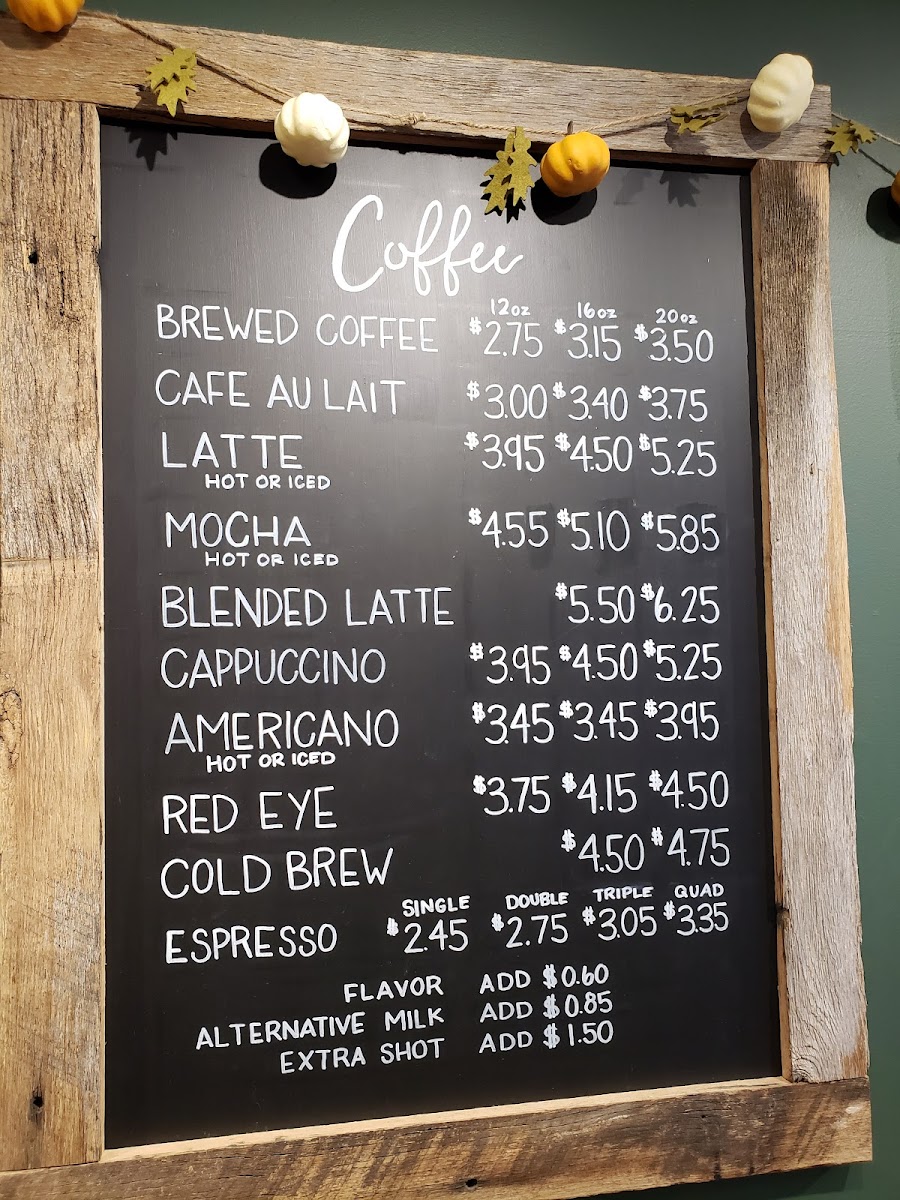 Coffee
12oz 16oz 20oz
BREWED COFFEE $2.75 $3.15 $3.50
CAFE AU LAIT $3.00 $3.40 $3.75
LATTE $3.95 $4.50 $5.25
HOT OR ICED
MOCHA $4.55 $5.10 $5.85
HOT OR ICED
BLENDED LATTE $5.50 $6.25
CAPPUCCINO $3.95 $4.50 $5.25
AMERICANO $3.45 $3.45 $3.95
HOT OR ICED
RED EYE $3.75 $4.15 $4.50
COLD BREW $4.50 $4.75
SINGLE DOUBLE TRIPLE QUAD
ESPRESSO $2.45 $2.75 $3.05 $3.35
FLAVOR ADD $0.60
ALTERNATIVE MILK ADD $0.85
EXTRA SHOT ADD $1.50